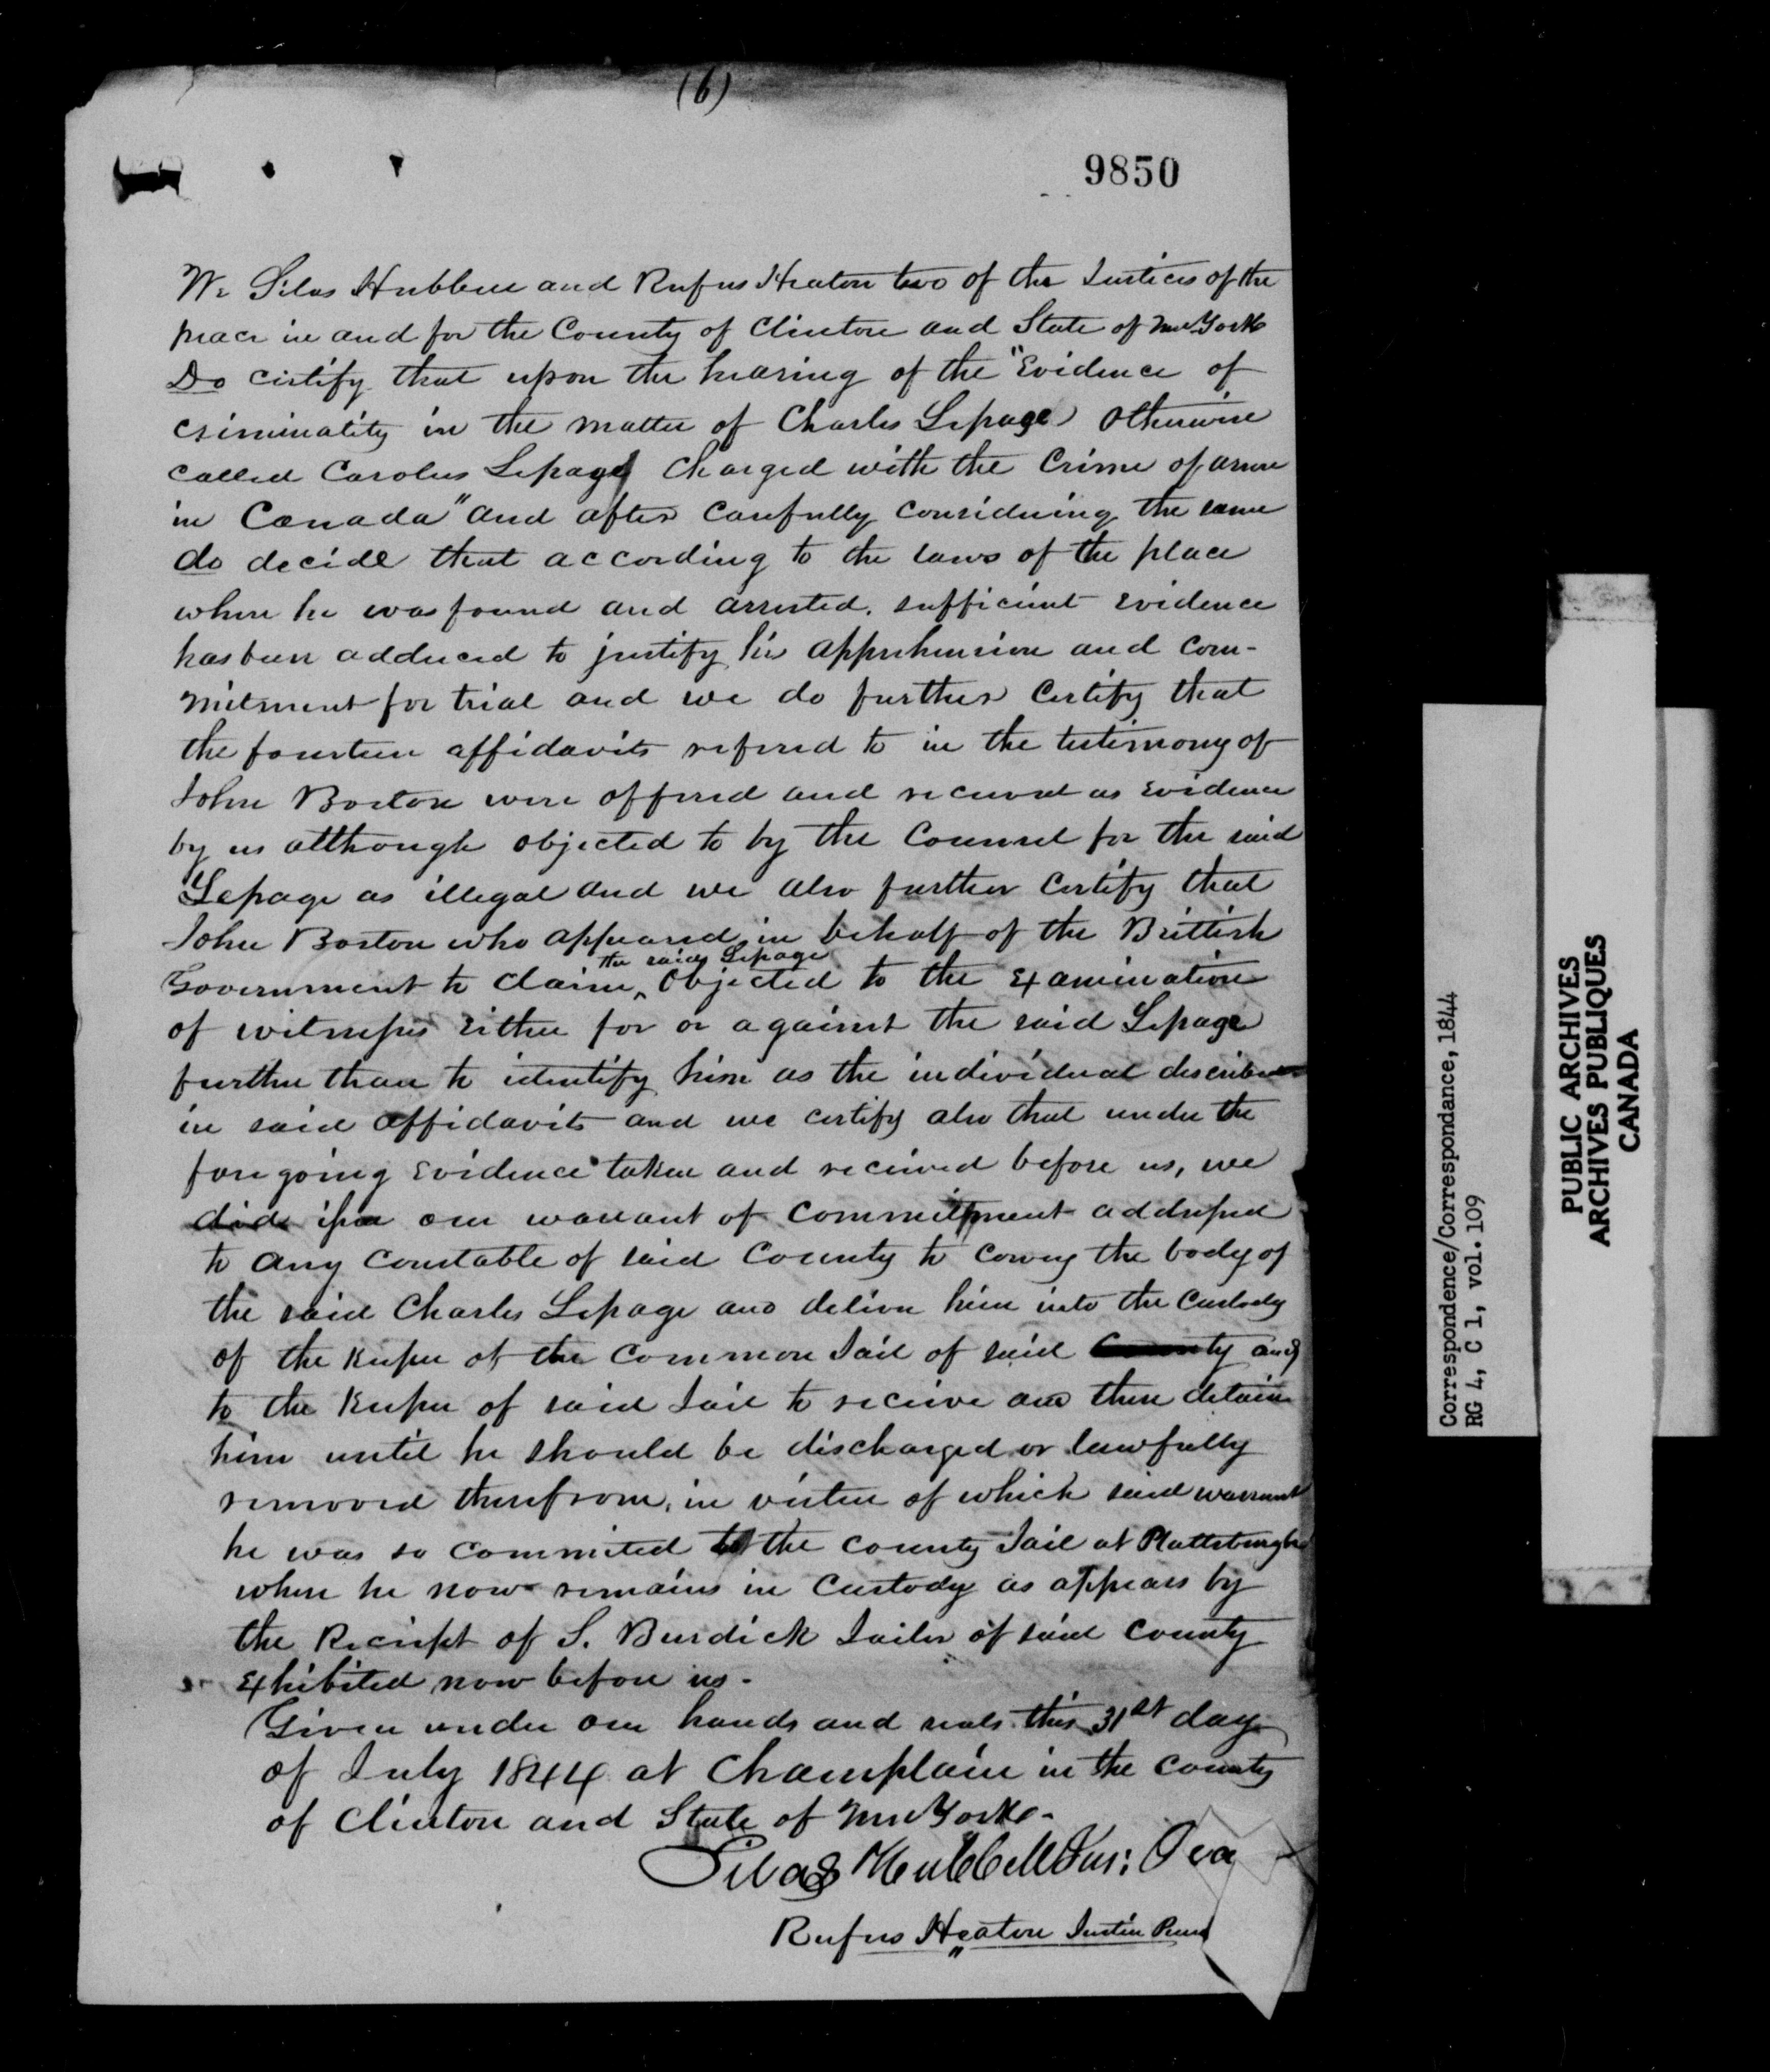 (6)
9850
We Silas Hubbell and Rufus Heaton two of the Justices of the
peace in and for the County of Clinton and State of New York
Do certify that upon the hearing of the "Evidence of
criminality in the matter of Charles Lepage otherwise
called Carolus Lepage charged with the Crime of arson
in Canada" and after carefully considering the same
do decide that according to the laws of the place
where he was found and arrested, sufficient evidence
has been adduced to justify his apprehension and com-
mitment for trial and we do further Certify that
the fourteen affidavits refered to in the testimony of
John Boston were offered and received as Evidence
by us although objected to by the Counsel for the said
Lepage as illegal and we also further Certify that
John Boston who appeared in behalf of the Brittish
the said Lepage
Government to claim objected to the Examination
of witnesses either for or against the said Lepage
further than to identify him as the individual described
in said affidavits and we certify also that under the
foregoing Evidence taken and received before us, we
did issue our warrant of commitment addressed
to any Constable of said County to convey the body of
the said Charles Lepage and deliver him into the Custody
of the keeper of the Common Jail of said County and
to the Keeper of said Jail to receive and there detain
him until he should be discharged or lawfully
removed therefrom, in virtue of which said warrant
he was so commited to the county Jail at Plattsburgh
where he now remains in Custody as appears by
the Receipt of S. Burdick Jailer of said County
Exhibited now before us -
Given under our hands and seals this 31st day
of July 1844 at Champlain in the county
of Clinton and State of New York -
Silas Hubbell Jus: Pea
Rufus Heaton Justice Peace
Correspondence/Correspondance, 1844
RG 4, C 1, vol. 109
PUBLIC ARCHIVES
ARCHIVES PUBLIQUES
CANADA